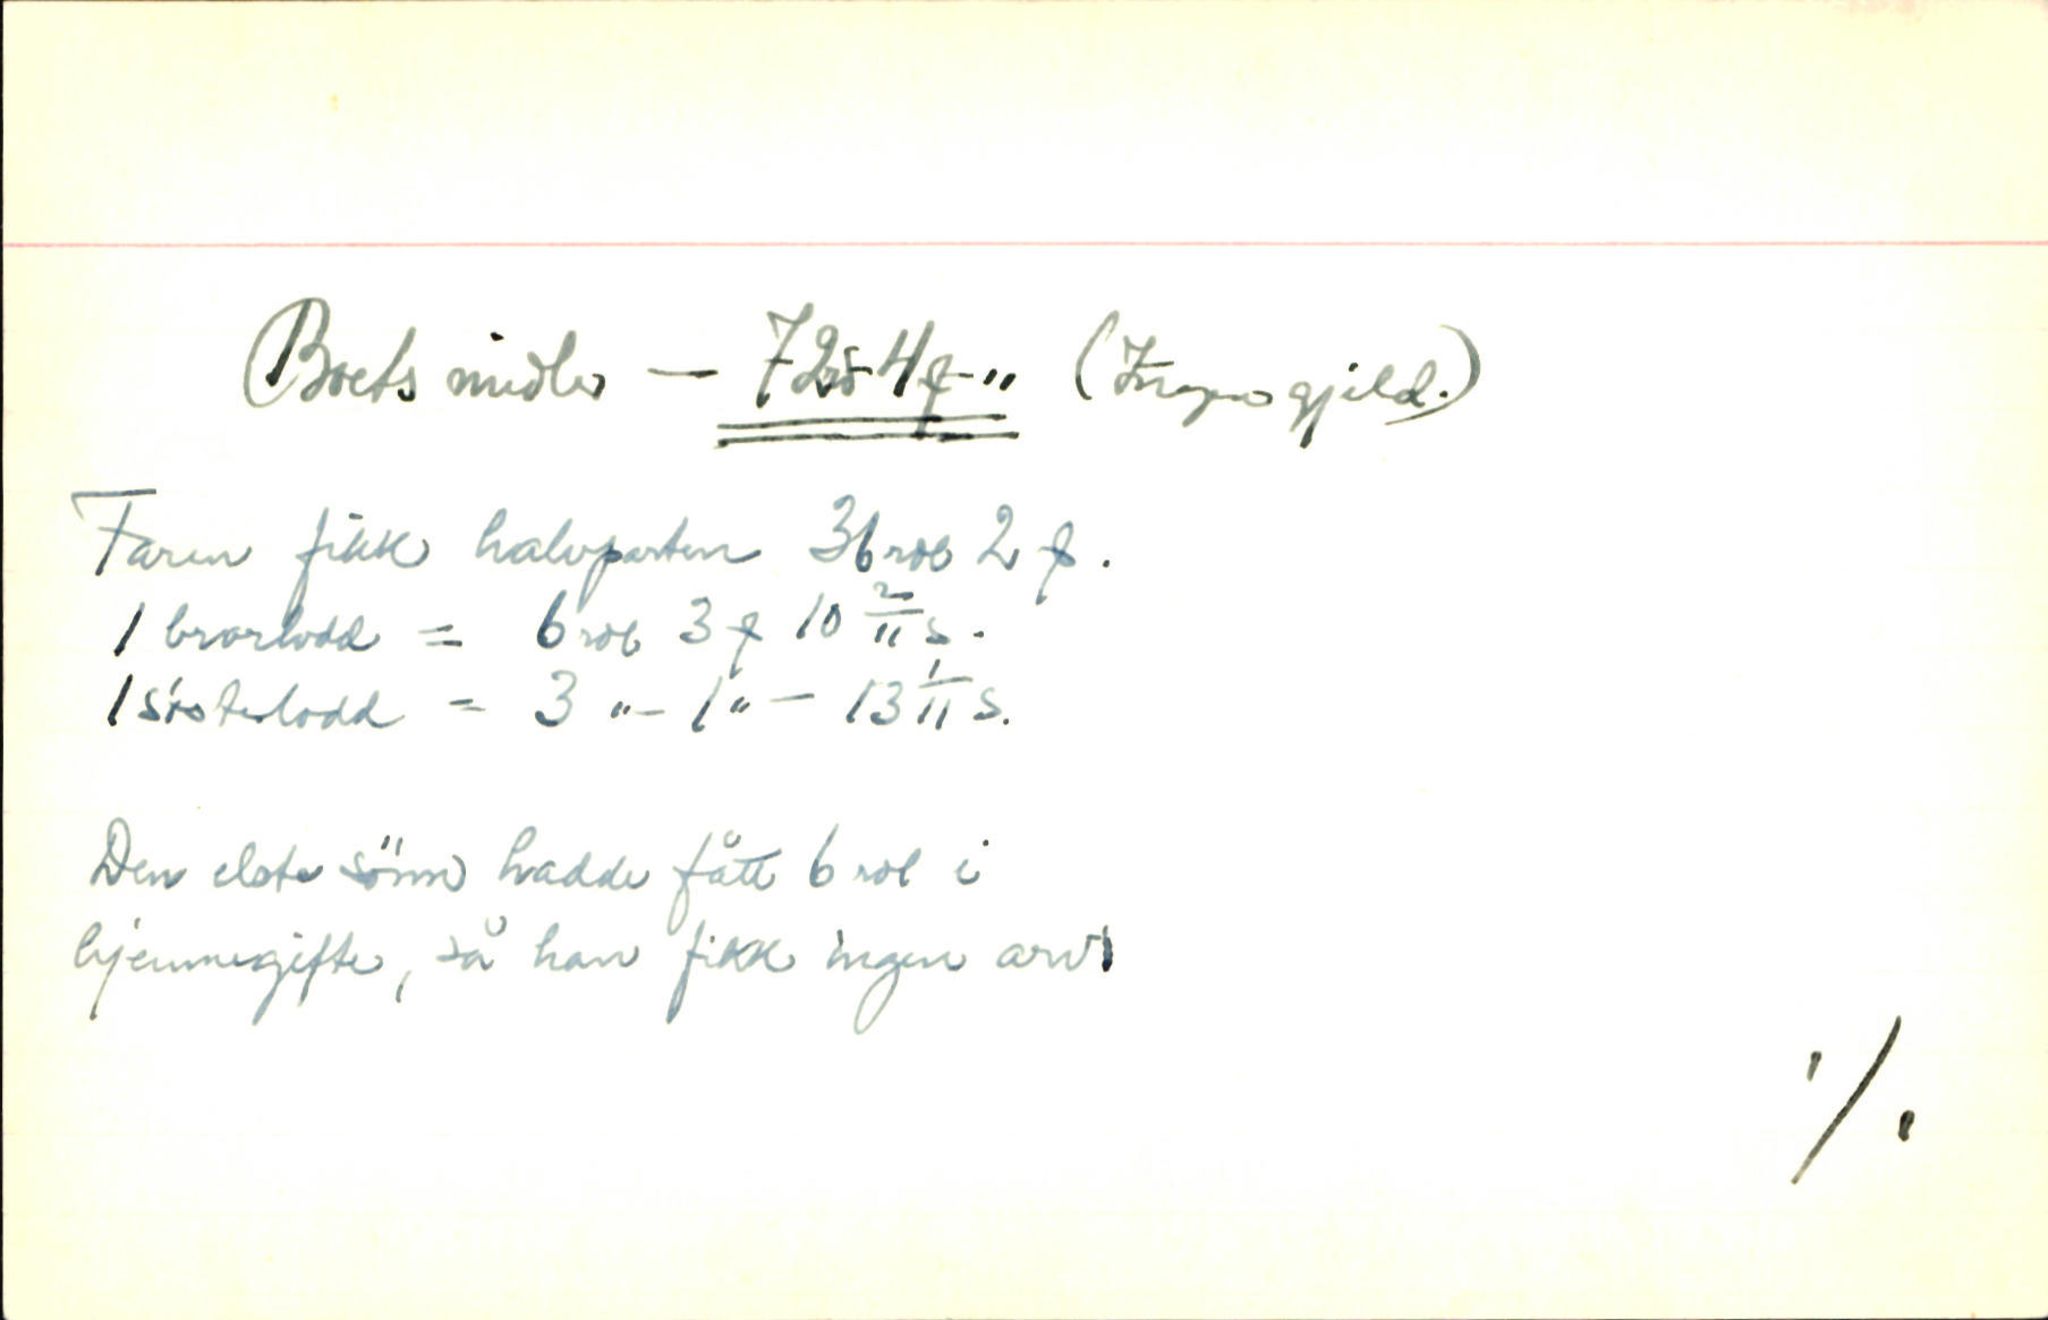 Boets midler — 72 rd 4 ƒ - " (Ingen gjeld.)
Faren fikk halvparten 36 rdl 2 ƒ.
1 brorlodd = 6 rdl 3 ƒ 10 2/11 s.
1 søsterlodd = 3 "— 1 "— 13 1/11 s.
Den elste sönn hadde fått 6 rdl i
hjemmegifte, så han fikk ingen arv.
./.